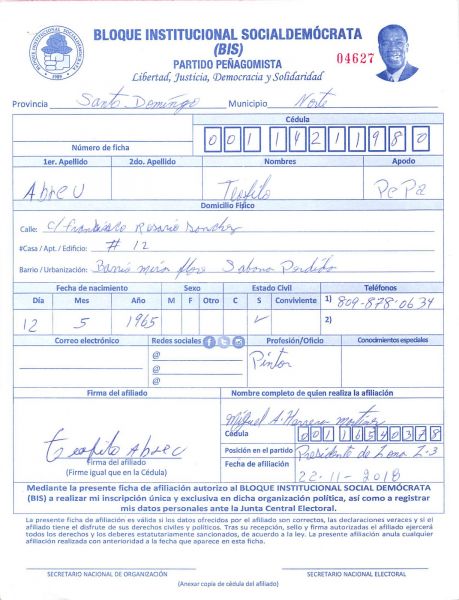 BLOQUE INSTITUCIONAL SOCIALDEMÓCRATA
(BIS)
PARTIDO PEÑAGOMISTA
Libertad, Justicia, Democracia y Solidaridad
04627
Provincia Santo Domingo Municipio Norte
Cédula
Número de ficha 001 1421198 0
1er. Apellido 2do. Apellido Nombres Apodo
Abreu Teofilo PePa
Domicilio Físico
Calle: c/ francisco Rosario Sanchez
#Casa / Apt. / Edificio: # 12
Barrio / Urbanización: Barrio mira flore Sabana Perdida
Fecha de nacimiento Sexo Estado Civil Teléfonos
Día Mes Año M F Otro C S Conviviente 1) 809-878-0634
12 5 1965 ✓ 2)
Correo electrónico Redes sociales Profesión/Oficio Conocimientos especiales
@ Pintor
@
@
Firma del afiliado Nombre completo de quien realiza la afiliación
Miguel A. Herrera Martinez
Cédula 001 1654037 8
Teofilo Abreu Posición en el partido Presidente de Zona Z-3
Firma del afiliado Fecha de afiliación 22-11-2018
(Firme igual que en la Cédula)
Mediante la presente ficha de afiliación autorizo al BLOQUE INSTITUCIONAL SOCIAL DEMÓCRATA
(BIS) a realizar mi inscripción única y exclusiva en dicha organización política, así como a registrar
mis datos personales ante la Junta Central Electoral.
La presente ficha de afiliación es válida si los datos ofrecidos por el afiliado son correctos, las declaraciones veraces y si el
afiliado tiene el disfrute de sus derechos civiles y políticos. Tras su recepción, sello y firma autorizadas el afiliado ejercerá
todos los derechos y los deberes estatutariamente sancionados, de acuerdo a la ley. La presente afiliación anula cualquier
afiliación realizada con anterioridad a la fecha que aparece en esta ficha.
SECRETARIO NACIONAL DE ORGANIZACIÓN SECRETARIO NACIONAL ELECTORAL
(Anexar copia de cédula del afiliado)